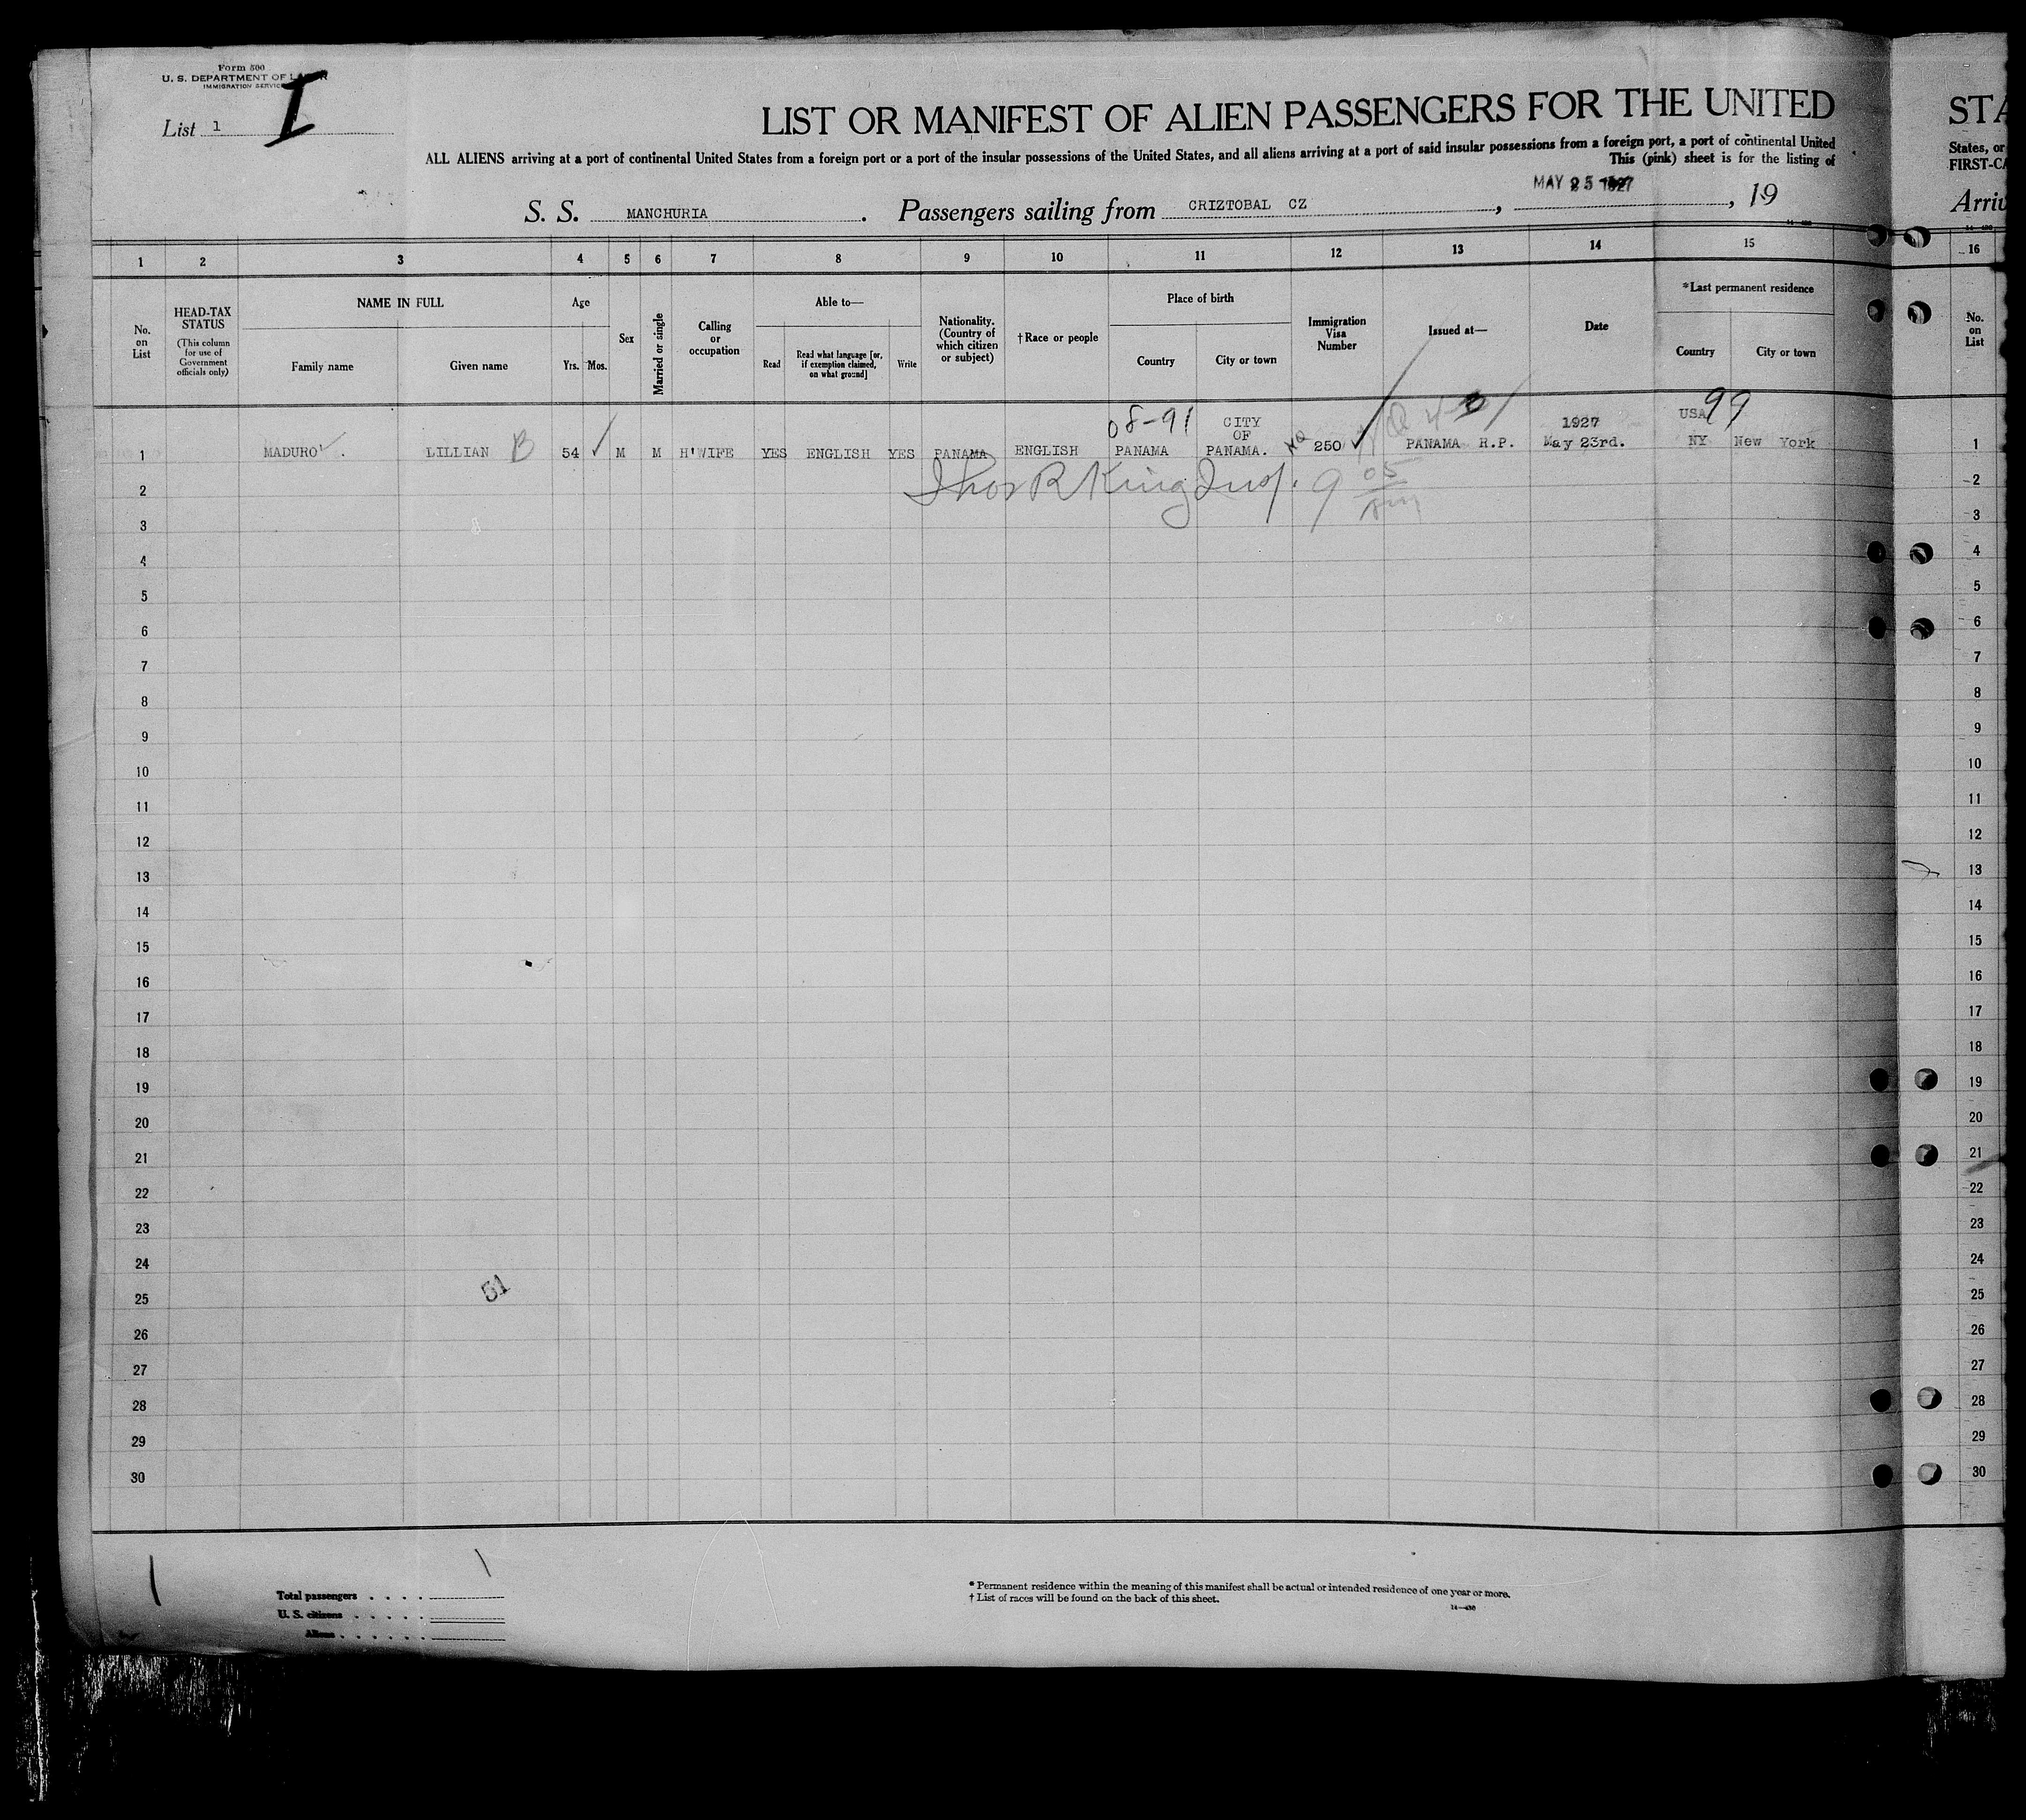 Form 500
U. S. DEPARTMENT OF LABOR
IMMIGRATION SERVICE
List 1 I
LIST OR MANIFEST OF ALIEN PASSENGERS FOR THE UNITED STA
ALL ALIENS arriving at a port of continental United States from a foreign port or a port of the insular possessions of the United States, and all aliens arriving at a port of said insular possessions from a foreign port, a port of continental United States, or
This (pink) sheet is for the listing of FIRST-CA
MAY 25 1927
S. S. MANCHURIA . Passengers sailing from CRIZTOBAL CZ , , 19 Arriv
1 2 3 4 5 6 7 8 9 10 11 12 13 14 15 16
No. on List
HEAD-TAX STATUS
(This column for use of Government officials only)
NAME IN FULL
Family name Given name
Age
Yrs. Mos.
Sex
Married or single
Calling or occupation
Able to—
Read
Read what language [or, if exemption claimed, on what ground]
Write
Nationality. (Country of which citizen or subject)
†Race or people
Place of birth
Country City or town
Immigration Visa Number
Issued at—
Date
*Last permanent residence
Country City or town
No. on List
08-91 CITY OF 1927 USA 99
1 MADURO . LILLIAN B 54 M M H'WIFE YES ENGLISH YES PANAMA ENGLISH PANAMA PANAMA. NQ 250 PANAMA R.P. May 23rd. NY New York 1
2 Thos R King Insp. 9 05 AM 2
3 3
4 4
5 5
6 6
7 7
8 8
9 9
10 10
11 11
12 12
13 13
14 14
15 15
16 16
17 17
18 18
19 19
20 20
21 21
22 22
23 23
24 24
51
25 25
26 26
27 27
28 28
29 29
30 30
Total passengers
U. S. citizens
Aliens
* Permanent residence within the meaning of this manifest shall be actual or intended residence of one year or more.
† List of races will be found on the back of this sheet.
14—430